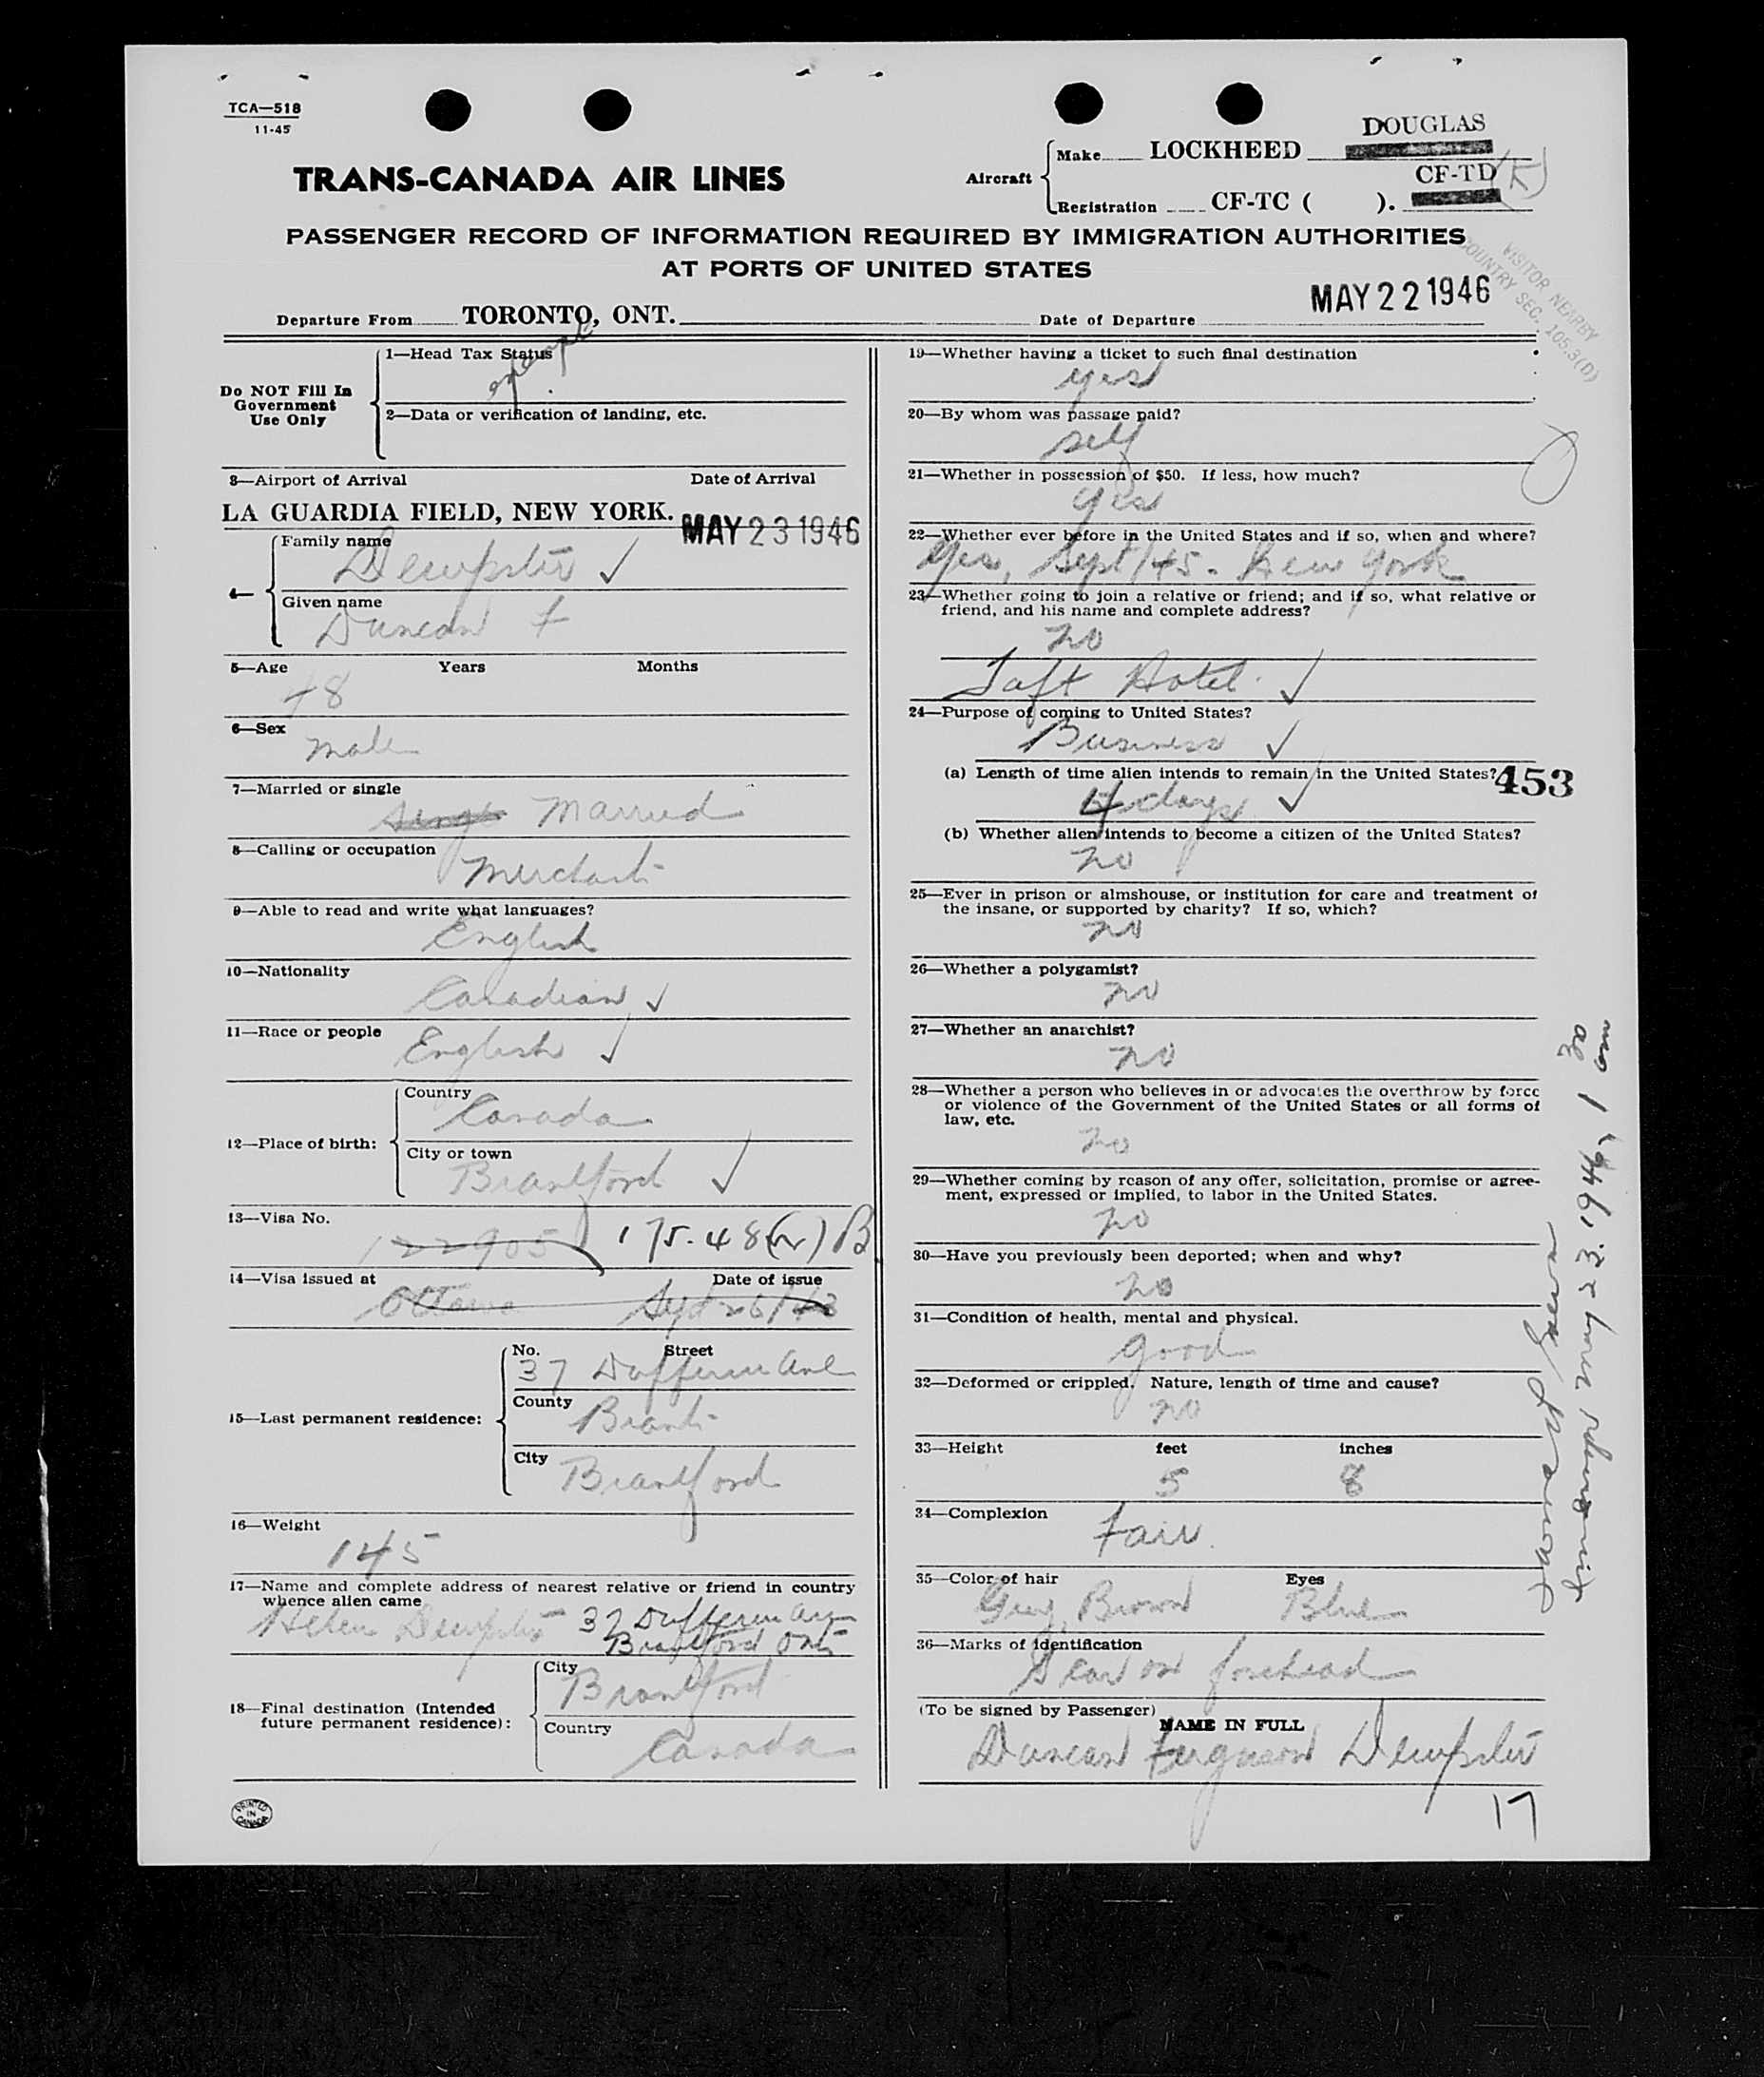 TCA—518
11-45
TRANS-CANADA AIR LINES
Aircraft
Make LOCKHEED DOUGLAS
Registration CF-TC ( ). CF-TD (K)
PASSENGER RECORD OF INFORMATION REQUIRED BY IMMIGRATION AUTHORITIES
AT PORTS OF UNITED STATES
VISITOR NEARBY
COUNTRY SEC. 105.3(D)
Departure From TORONTO, ONT. Date of Departure MAY 22 1946
Do NOT Fill In
Government
Use Only
1—Head Tax Status
exempt
2—Data or verification of landing, etc.
3—Airport of Arrival Date of Arrival
LA GUARDIA FIELD, NEW YORK. MAY 23 1946
4—
Family name
Dempster ✓
Given name
Duncan F
5—Age Years Months
48
6—Sex
male
7—Married or single
Single Married
8—Calling or occupation
Merchant
9—Able to read and write what languages?
English
10—Nationality
Canadian ✓
11—Race or people
English ✓
12—Place of birth:
Country
Canada
City or town
Brantford ✓
13—Visa No.
122905 175.48(a) B
14—Visa issued at Date of issue
Ottawa Sept 26/43
15—Last permanent residence:
No. Street
37 Dufferin Ave
County
Brant
City
Brantford
16—Weight
145
17—Name and complete address of nearest relative or friend in country
whence alien came
Helen Dempster 37 Dufferin Ave
Brantford Ont
18—Final destination (Intended
future permanent residence):
City
Brantford
Country
Canada
PRINTED
IN
CANADA
19—Whether having a ticket to such final destination
yes
20—By whom was passage paid?
self
21—Whether in possession of $50. If less, how much?
yes
22—Whether ever before in the United States and if so, when and where?
Yes, Sept/45. New York
23—Whether going to join a relative or friend; and if so, what relative or
friend, and his name and complete address?
no
Taft Hotel. ✓
24—Purpose of coming to United States?
Business ✓
(a) Length of time alien intends to remain in the United States? 453
4 days ✓
(b) Whether alien intends to become a citizen of the United States?
no
25—Ever in prison or almshouse, or institution for care and treatment of
the insane, or supported by charity? If so, which?
no
26—Whether a polygamist?
no
27—Whether an anarchist?
no
28—Whether a person who believes in or advocates the overthrow by force
or violence of the Government of the United States or all forms of
law, etc.
no
29—Whether coming by reason of any offer, solicitation, promise or agree-
ment, expressed or implied, to labor in the United States.
no
30—Have you previously been deported; when and why?
no
31—Condition of health, mental and physical.
good
32—Deformed or crippled. Nature, length of time and cause?
no
33—Height feet inches
5 8
34—Complexion
Fair.
35—Color of hair Eyes
Grey Brown Blue
36—Marks of identification
Scar on forehead
(To be signed by Passenger)
NAME IN FULL
Duncan Ferguson Dempster
17
1946